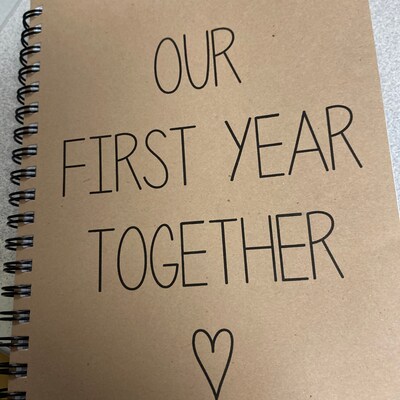 OUR
FIRST YEAR
TOGETHER